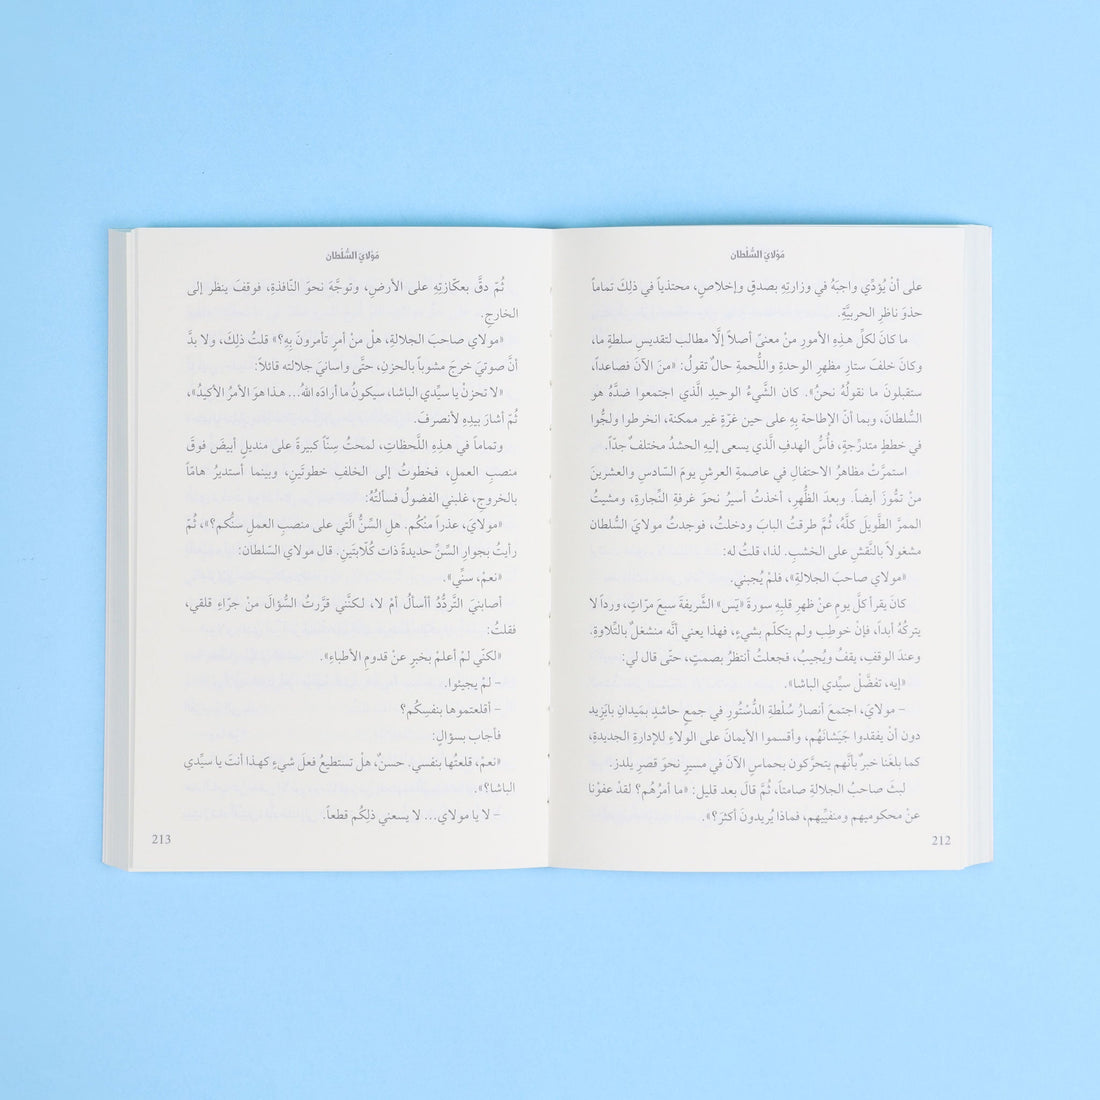 مَوْلايَ السُّلْطان
على أنْ يُؤدِّي واجبَهُ في وزارتِهِ بصدقٍ وإخلاصٍ، محتذياً في ذلِكَ تماماً
حذوَ ناظرِ الحربيَّةِ.
ما كانَ لكلِّ هـذِهِ الأمورِ منْ معنىً أصلاً إلَّا مطالب لتقديسِ سلطةٍ ما،
وكانَ خلفَ ستارِ مظهرِ الوحدةِ واللُّحمةِ حالٌ تقولُ: «منَ الآنَ فصاعداً،
ستقبلونَ ما نقولُهُ نحنُ». كان الشَّيءُ الوحيدِ الَّذي اجتمعوا ضدَّهُ هو
السُّلطانَ، وبما أنّ الإطاحة بِهِ على حين غرّةٍ غير ممكنة، انخرطوا ولجُّوا
في خططٍ متدرِّجةٍ، فأُسُّ الهدفِ الَّذي يسعى إليهِ الحشدُ مختلفٌ جدّاً.
استمرَّتْ مظاهرُ الاحتفالِ في عاصمةِ العرشِ يومَ السّادسِ والعشرينَ
منْ تمُّوزَ أيضاً. وبعدَ الظُّهرِ، أخذتُ أسيرُ نحوَ غرفةِ النِّجارةِ، ومشيتُ
الممرَّ الطَّويلَ كلَّهُ، ثُمَّ طرقتُ البابَ ودخلتُ، فوجدتُ مولايَ السُّلطان
مشغولاً بالنَّقشِ على الخشبِ. لذا، قلتُ له:
«مولاي صاحبَ الجلالةِ»، فلمْ يُجبني.
كانَ يقرأ كلَّ يومٍ عنْ ظهرِ قلبِهِ سورةَ «يّس» الشَّريفةَ سبعَ مرّاتٍ، ورداً لا
يتركُهُ أبداً، فإنْ خوطِب ولم يتكلّم بشيءٍ، فهذا يعني أنَّه منشغلٌ بالتِّلاوةِ.
وعندَ الوقفِ، يقفُ ويُجيبُ، فجعلتُ أنتظرُ بصمتٍ، حتّى قال لي:
«إيه، تفضَّلْ سيِّدي الباشا».
– مولايَ، اجتمعَ أنصارُ سُلْطةِ الدُّسْتُورِ في جمعٍ حاشدٍ بمَيدانِ بايَزِيد
دون أنْ يفقدوا جَيَشانَهُم، وأقسموا الأيمانَ على الولاءِ للإدارةِ الجديدةِ،
كما بلغَنا خبرٌ بأنَّهم يتحرَّكون بحماسٍ الآنَ في مسيرٍ نحوَ قصرِ يلدز.
لبثَ صاحبُ الجلالةِ صامتاً، ثُمَّ قالَ بعد قليل: «ما أمرُهُم؟ لقدْ عفوْنا
عنْ محكوميهم ومنفيِّيهم، فماذا يُريدونَ أكثرَ؟».
212
مَوْلايَ السُّلْطان
ثُمّ دقَّ بعكّازتِهِ على الأرضِ، وتوجَّهَ نحوَ النّافذةِ، فوقفَ ينظر إلى
الخارجِ.
«مولاي صاحبَ الجلالةِ، هلْ منْ أمرٍ تأمرونَ بِهِ؟» قلتُ ذلِكَ، ولا بدَّ
أنَّ صوتيَ خرجَ مشوباً بالحزنِ، حتَّى واسانيَ جلالته قائلاً:
«لا تحزنْ يا سيِّدي الباشا، سيكونُ ما أرادَه اللهُ... هذا هوَ الأمرُ الأكيدُ»،
ثُمَّ أشارَ بيدِهِ لأنصرفَ.
وتماماً في هـذِهِ اللَّحظاتِ، لمحتُ سِنّاً كبيرةً على منديلٍ أبيضَ فوقَ
منصبِ العملِ، فخطوتُ إلى الخلفِ خطوتَينِ، وبينما أستديرُ هامّاً
بالخروجِ، غلبني الفضولُ فسألتُهُ:
«مولايَ، عذراً منْكُم. هلِ السِّنُّ الَّتي على منصبِ العملِ سنُّكم؟»، ثُمَّ
رأيتُ بجوارِ السِّنِّ حديدةً ذات كُلّابتَينِ. قال مولاي السّلطان:
«نعمْ، سنِّي».
أصابنيَ التَّردُّدُ أأسألُ أمْ لا، لـكنَّني قرَّرتُ السُّؤالَ منْ جرّاءِ قلقي،
فقلتُ:
«لكنّي لمْ أعلمْ بخبرٍ عنْ قدومِ الأطباءِ».
– لمْ يجيئوا.
– أقلعتموها بنفسِكُم؟
فأجاب بسؤالٍ:
«نعمْ، قلعتُها بنفسي. حسنٌ، هلْ تستطيعُ فعلَ شيءٍ كهـذا أنتَ يا سيِّدي
الباشا؟».
– لا يا مولاي... لا يسعني ذلِكُم قطعاً.
213